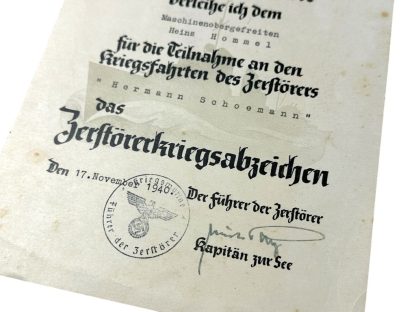 verleihe ich dem
Maschinenobergefreiten
Heinz Hommel
für die Teilnahme an den
Kriegsfahrten des Zerstörers
"Hermann Schoemann"
das
Zerstörerkriegsabzeichen
Den 17.November 1940.
Der Führer der Zerstörer
Kapitän zur See
Kriegsmarine
Führer der Zerstörer